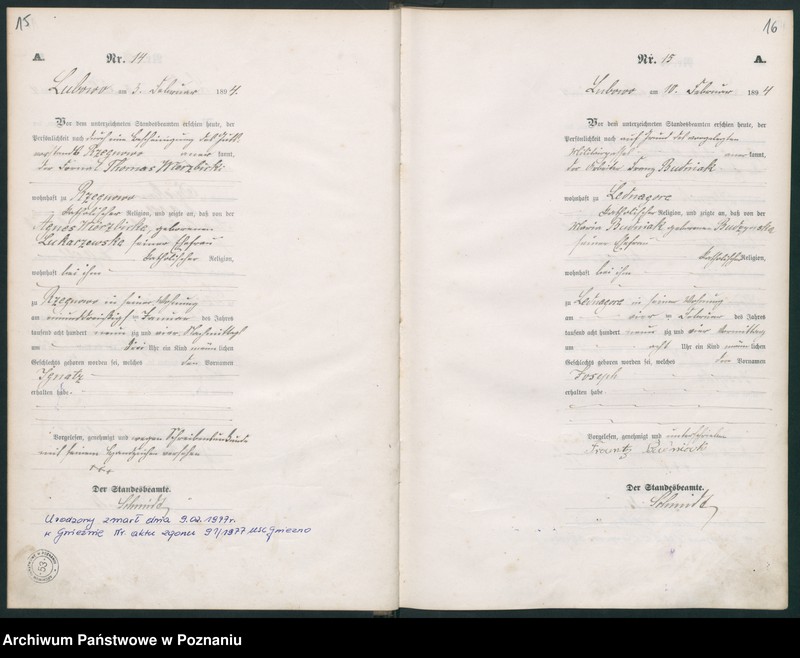 15
A. Nr. 14
Lubowo am 3. Februar 1894.
Vor dem unterzeichneten Standesbeamten erschien heute, der
Persönlichkeit nach durch eine Bescheinigung des Guts-
vorstandes Rzegnowo anerkannt,
der Fornal Thomas Wierzbicki
wohnhaft zu Rzegnowo
katholischer Religion, und zeigte an, daß von der
Agnes Wierzbicka, geborenen
Lukarzewska seiner Ehefrau
katholischer Religion,
wohnhaft bei ihm
zu Rzegnowo in seiner Wohnung
am neununddreißigsten Januar des Jahres
tausend acht hundert neunzig und vier Nachmittags
um drei Uhr ein Kind männlichen
Geschlechts geboren worden sei, welches den Vornamen
Ignatz
erhalten habe.
Vorgelesen, genehmigt und wegen Schreibensunkunde
mit seinem Handzeichen versehen
+++
Der Standesbeamte.
Schmidt
Urodzony zmarł dnia 9.02.1977r.
w Gnieźnie Nr. aktu zgonu 91/1977 USC Gniezno
53
16
Nr. 15 A.
Lubowo am 10. Februar 1894
Vor dem unterzeichneten Standesbeamten erschien heute, der
Persönlichkeit nach auf Grund des vorgelegten
Militärpasses anerkannt,
der Arbeiter Franz Budniak
wohnhaft zu Lednagora
katholischer Religion, und zeigte an, daß von der
Maria Budniak geborenen
seiner Ehefrau
katholischer Religion,
wohnhaft bei ihm
zu Lednagora in seiner Wohnung
am vierten Februar des Jahres
tausend acht hundert neunzig und vier Vormittag
um acht Uhr ein Kind männlichen
Geschlechts geboren worden sei, welches den Vornamen
Joseph
erhalten habe.
Vorgelesen, genehmigt und unterschrieben
Frantz Budniack
Der Standesbeamte.
Schmidt
Archiwum Państwowe w Poznaniu